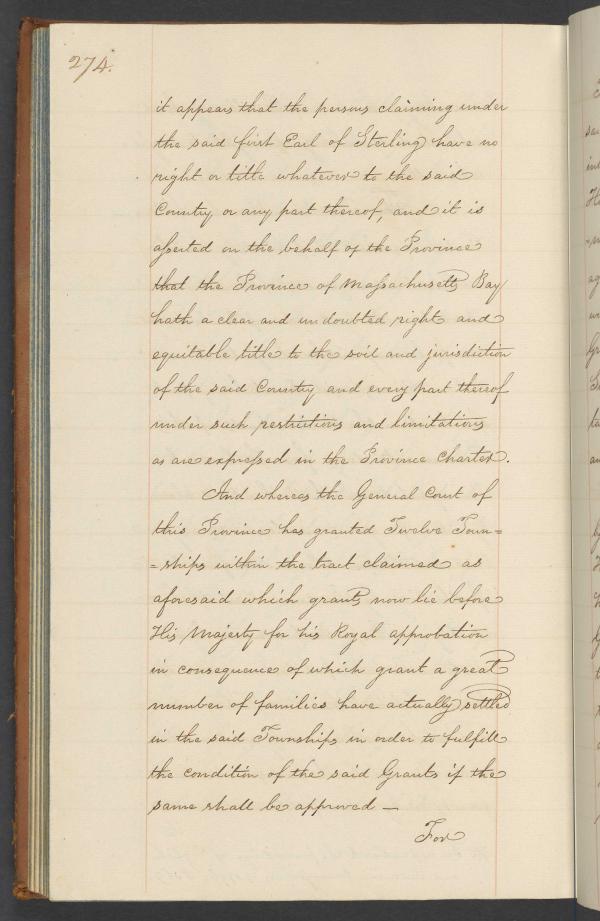 274.
it appears that the persons claiming under
the said first Earl of Sterling have no
right or title whatever to the said
Country or any part thereof, and it is
asserted on the behalf of the Province
that the Province of Massachusetts Bay
hath a clear and undoubted right and
equitable title to the soil and jurisdiction
of the said Country and every part thereof
under such restrictions and limitations
as are expressed in the Province Charter.
And whereas the General Court of
this Province has granted Twelve Town=
=ships within the tract claimed as
aforesaid which grants now lie before
His Majesty for his Royal approbation
in consequence of which grant a great
number of families have actually settled
in the said Townships in order to fulfill
the condition of the said Grants if the
same shall be approved —
For